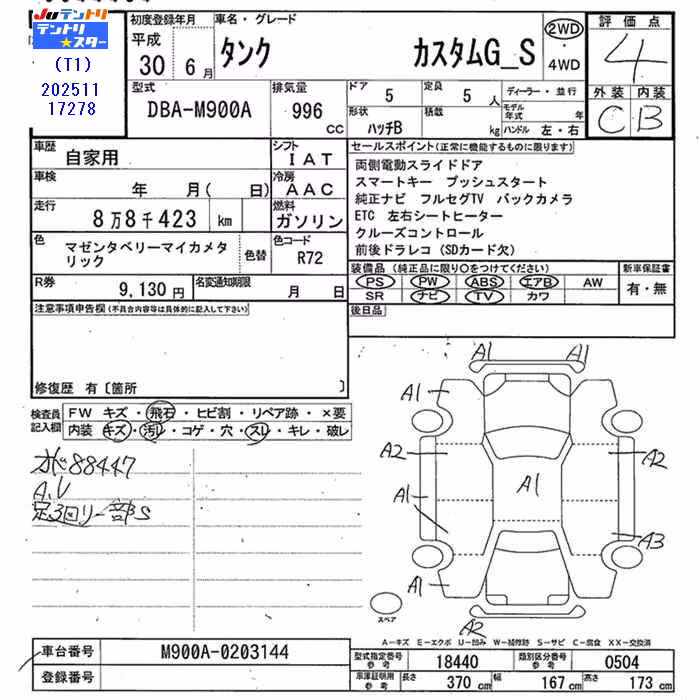 JUテントリ
テントリ
★スター
(T1)
202511
17278
初度登録年月
平成
30 6月
車名・グレード
タンク カスタムG_S
2WD
・
4WD
評価点
4
外装 内装
C B
型式
DBA-M900A
排気量
996
CC
ドア
5
定員
5 人
形状
ハッチB
積載
kg
ディーラー・並行
モデル年式 年
ハンドル 左・右
車歴
自家用
シフト
IAT
車検
年 月( 日)
冷房
AAC
走行
8万8千423 km
燃料
ガソリン
色
マゼンタベリーマイカメタリック
色替
色コード
R72
R券
9,130円
名変通知期限
月 日
セールスポイント(正常に機能するものに限ります)
両側電動スライドドア
スマートキー プッシュスタート
純正ナビ フルセグTV バックカメラ
ETC 左右シートヒーター
クルーズコントロール
前後ドラレコ(SDカード欠)
装備品(純正品に限り○をつけてください)
PS PW ABS エアB AW
SR ナビ TV カワ
新車保証書
有・無
後日品
注意事項申告欄(不具合内容等は具体的に記入して下さい)
修復歴 有〔箇所 〕
検査員記入欄
FW キズ・飛石・ヒビ割・リペア跡・×要
内装 キズ・汚レ・コゲ・穴・スレ・キレ・破レ
88447
A.V
足3回り一部S
A1 A1
A1
A2 A2
A1 A1
A3
A1
A2
スペア
A-キズ E-エクボ U-凹み W-補修跡 S-サビ C-腐食 XX-交換済
車台番号
M900A-0203144
登録番号
型式指定番号
参考
18440
類別区分番号
参考
0504
車庫証明用
参考
長さ
370 cm
幅
167 cm
高さ
173 cm